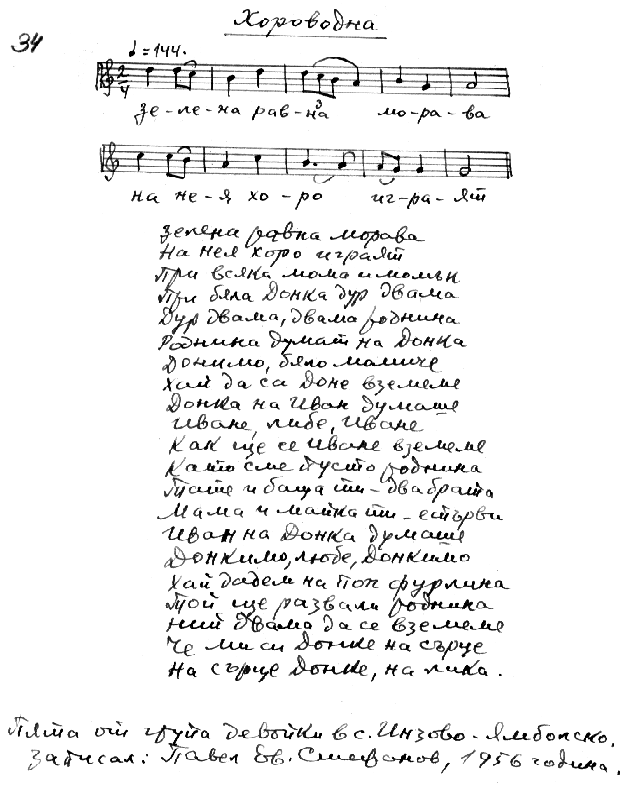 Хороводна
34
♩=144.
2/4
зе-ле-на рав-на мо-ра-ва
3
на не-я хо-ро иг-ра-ят
Зелена равна морава
На нея хоро играят
При всяка мома и момък
При бяла Донка дур двама
Дур двама, двама роднина
Роднина думат на Донка
Донкимо, бяло момиче
Хай да са Доне вземеме
Донка на Иван думаше
Иване, либе, Иване
Как ще се Иване вземеме
Като сме пусто роднина
Тате и баща ти - два брата
Мама и майка ти - етърви
Иван на Донка думаше
Донкимо, любе, Донкимо
Хай дадем на поп фурлина
Той ще развали роднина
Ний двама да се вземеме
Че ми си Донке на сърце
На сърце Донке, на лика.
Пята от група девойки в с. Инзово - Ямболско.
Записал: Павел Ев. Стефанов, 1956 година.